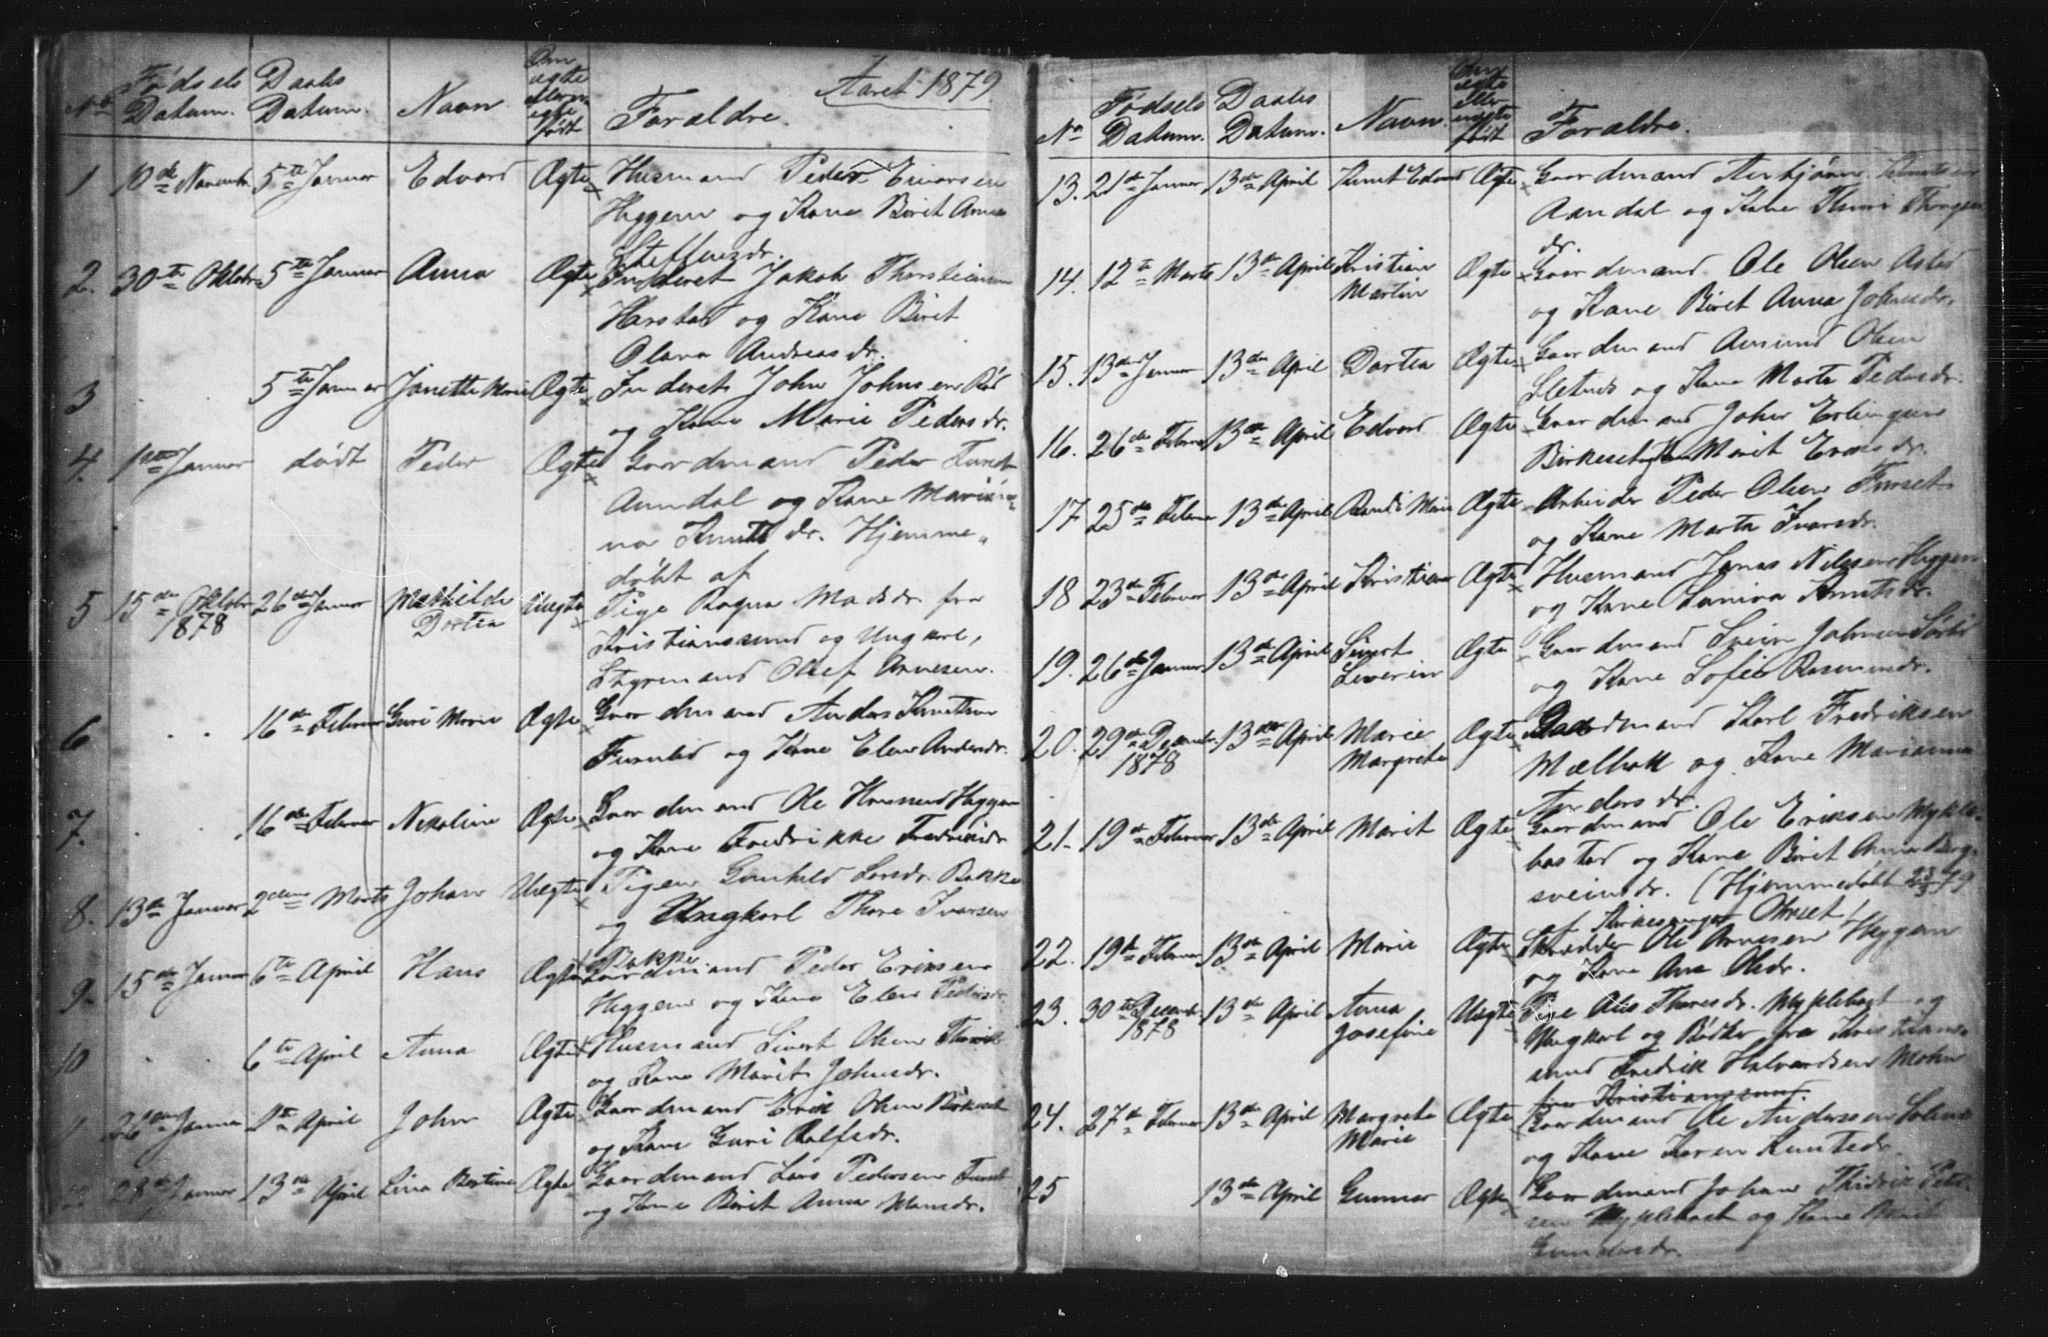 Aaret 1879
No Fødsels Datum. Daabs Datum. Navn Om ægte eller uægte født Forældre.
1 10de Novembr 5te Januar Edvard Ægte Husmand Peder Einarsen
Hyggen og Kone Berit Anna
Steffensdr.
2. 30te Oktobr 5te Januar Anna Ægte Inderst Jakob Thorsteinsen
Harstad og Kone Berit
Olava Andreasdr.
3 5te Januar Janette Marie Ægte Inderst John Johnsen Rød
og Kone Marie Pedersdr.
4. 1ste Januar dødt Peder Ægte Gaardmand Peder Knudt
Aandal og Kone Marian-
na Knutsdr. Hjemme-
døbt af
5 15de Oktobr 1878 26de Januar Mathilde Dortea Uægte Pige Ragna Madsdr. fra
Kristianssund og Ungkarl,
Styrmand Olef Arnesen.
6 16de Februar Guri Marie Ægte Gaardmand Anders Knutsen
Furulid og Kone Elen Andersdr.
7. 16de Februar Nikoline Ægte Gaardmand Ole Hansen Hyggen
og Kone Fredrikke Fredriksdr
8. 13de Januar 2den Marts Johan Uægte Pigen Gunhild Larsdr. Bakke
og Ungkarl Thore Ivarsen
Bakke
9. 15de Januar 6te April Hans Ægte Gaardmand Peder Eriksen
Hyggen og Kone Elen Pedersdr.
10 6te April Anna Ægte Husmand Sivert Olsen
og Kone Marit Johnsdr.
11 26de Januar April John Ægte Gaardmand Erik Olsen Birkeset
og Kone Guri Rolfsdr.
12 28de Januar 13de April Lina Bertine Ægte Gaardmand Lars Pedersen Furset
og Kone Berit Anna Hansdr.
No Fødsels Datum. Daabs Datum. Navn. Om ægte eller uægte født Forældre.
13. 21de Januar 13de April Knut Edvard Ægte Gaardmand Asbjørn Knutsen
Aandal og Kone Thuri
dr.
14. 12te Marts 13de April Kristian Martin Ægte Gaardmand Ole Olsen
og Kone Berit Anna Johnsdr.
15. 13de Januar 13de April Dortea Ægte Gaardmand Amund Olsen
Sletnes og Kone Marta Pedersdr.
16. 26de Februar 13de April Edvard Ægte Gaardmand Johan Erlingsen
Birkeset Marit Eriksdr.
17 25de Februar 13de April Randi Marie Ægte Arbeider Peder Olsen Furset
og Kone Marta Ivarsdr.
18 23de Februar 13de April Kristian Ægte Husmand Jonas Nilsen Hyggen
og Kone Lavina Knutsdr.
19. 26de Januar 13de April Sivert Severin Ægte Gaardmand Svein Johnsen Sørli
og Kone Sofie Rasmusdr.
20. 29de Decembr. 1878 13de April Marie Margrete Ægte Gaardmand Karl Fredriksen
Mælbak og Kone Marianna
Andersdr.
21. 19de Februar 13de April Marit Ægte Gaardmand Ole Eriksen Mykle-
bostad og Kone Berit Anna Berg-
sveinsdr. (Hjemmedøbt 23/3 79
af Kirkesanger Ohrset)
22. 19de Februar 13de April Marie Ægte Skrædder Ole Arnesen Hyggen
og Kone Ane Olsdr.
23. 30te Decembr. 1878 13de April Anna Josefine Uægte Pige Alis Thoresdr. Myklebost og
Ungkarl og Bødker fra Kristian-
sund Fredrik Halvardsen Mohn
fra Kristianssund.
24. 27de Februar 13de April Margrete Marie Ægte Gaardmand Ole Andersen
og Kone Karen Knutsdr.
25 13de April Gunnar Ægte Gaardmand Johan Thidrik Peter-
sen Myklebost og Kone Berit
Gundersdr.